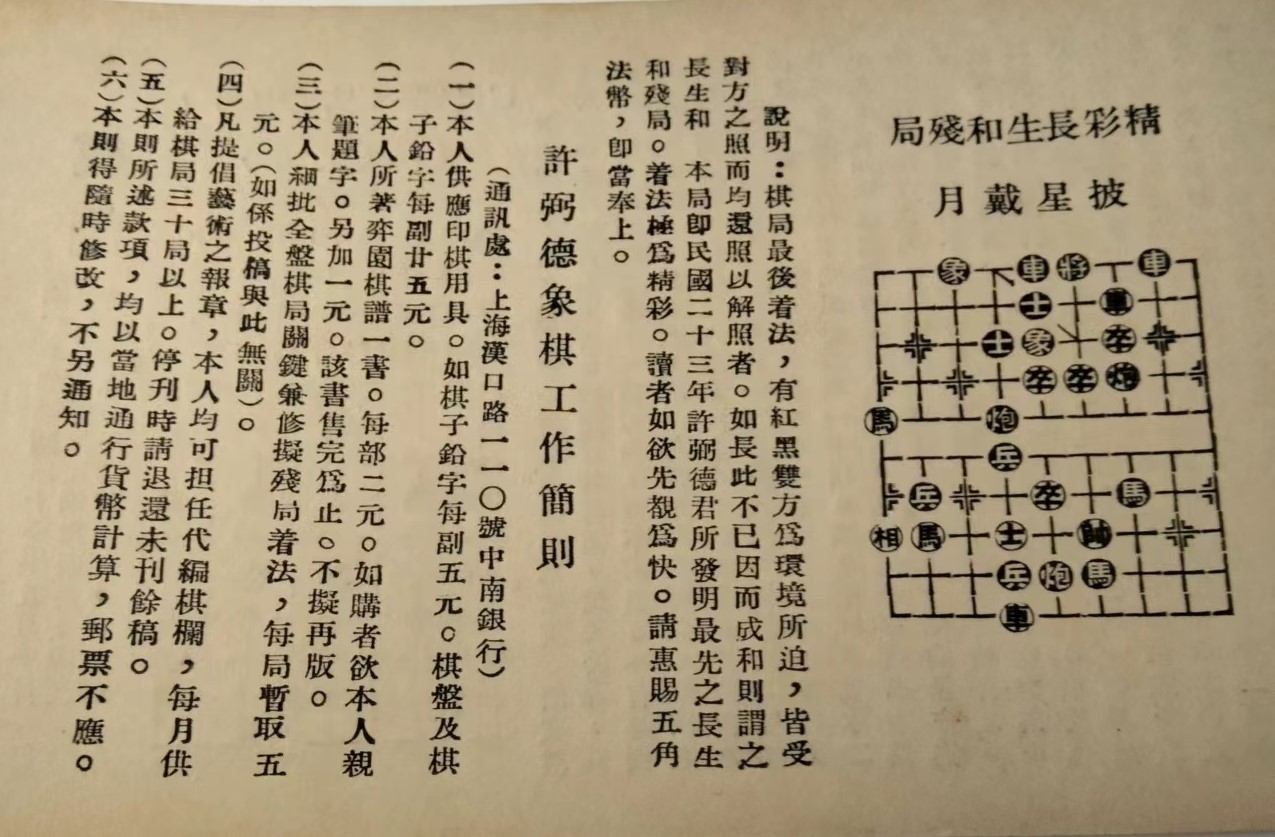 精彩長生和殘局
披星戴月
象 車 將 車
士 車
士 象 卒
卒 卒 炮
馬 炮
兵
兵 卒 馬
相 馬 士 帥
兵 炮 馬
車
說明：棋局最後着法，有紅黑雙方爲環境所迫，皆受
對方之照而均還照以解照者。如長此不已因而成和則謂之
長生和　本局卽民國二十三年許弼德君所發明最先之長生
和殘局。着法極爲精彩。讀者如欲先覩爲快。請惠賜五角
法幣，卽當奉上。
許弼德象棋工作簡則
（通訊處：上海漢口路一一〇號中南銀行）
（一）本人供應印棋用具。如棋子鉛字每副五元。棋盤及棋
子鉛字每副廿五元。
（二）本人所著弈園棋譜一書。每部二元。如購者欲本人親
筆題字。另加一元。該書售完爲止。不擬再版。
（三）本人細批全盤棋局關鍵兼修擬殘局着法，每局暫取五
元。（如係投稿與此無關）。
（四）凡提倡藝術之報章，本人均可担任代編棋欄，每月供
給棋局三十局以上。停刊時請退還未刊餘稿。
（五）本則所述款項，均以當地通行貨幣計算，郵票不應。
（六）本則得隨時修改，不另通知。